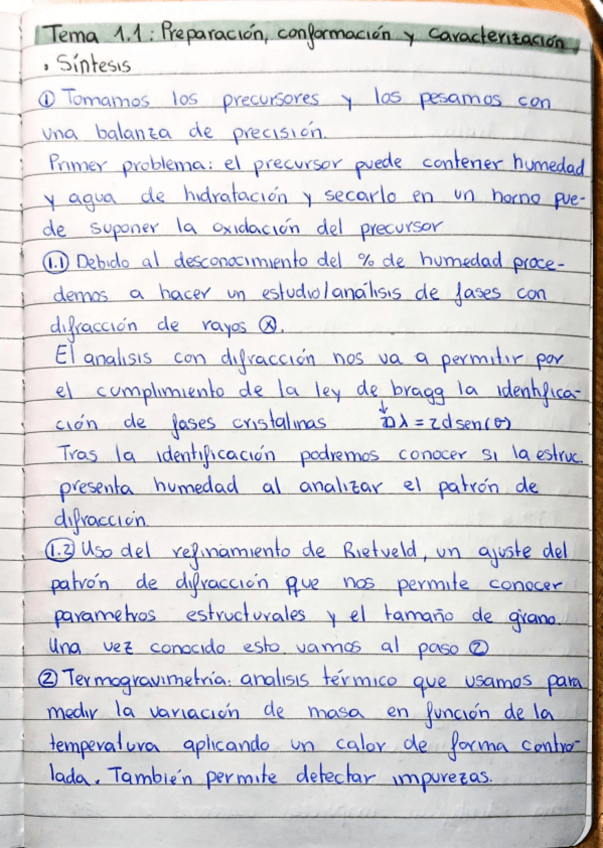 Tema 1.1: Preparación, conformación y caracterización
• Síntesis
① Tomamos los precursores y los pesamos con
una balanza de precisión.
Primer problema: el precursor puede contener humedad
y agua de hidratación y secarlo en un horno pue-
de suponer la oxidación del precursor
(1.1) Debido al desconocimiento del % de humedad proce-
demos a hacer un estudio/análisis de fases con
difracción de rayos Ⓧ.
El analisis con difracción nos va a permitir por
el cumplimiento de la ley de bragg la identifica-
ción de fases cristalinas ↓ nλ = 2dsen(θ)
Tras la identificación podremos conocer si la estruc.
presenta humedad al analizar el patrón de
difracción.
(1.2) Uso del refinamiento de Rietveld, un ajuste del
patrón de difracción que nos permite conocer
parametros estructurales y el tamaño de grano.
Una vez conocido esto vamos al paso ②
② Termogravimetría: analisis térmico que usamos para
medir la variación de masa en función de la
temperatura aplicando un calor de forma contro-
lada. También permite detectar impurezas.